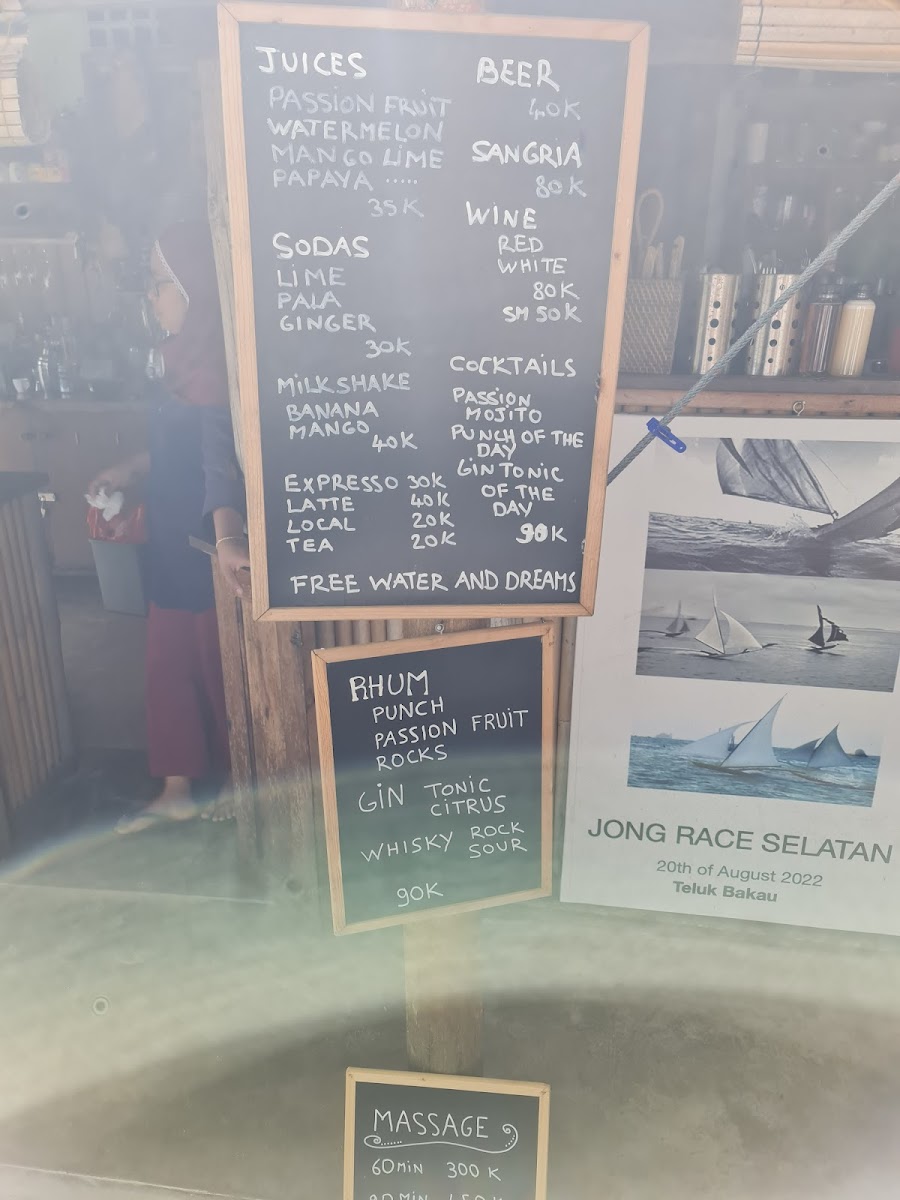 JUICES
PASSION FRUIT
WATERMELON
MANGO LIME
PAPAYA .....
35K
SODAS
LIME
PALA
GINGER
30K
MILKSHAKE
BANANA
MANGO
40K
EXPRESSO 30K
LATTE 40K
LOCAL 20K
TEA 20K
BEER
40K
SANGRIA
80K
WINE
RED
WHITE
80K
SM 50K
COCKTAILS
PASSION
MOJITO
PUNCH OF THE
DAY
GIN TONIC
OF THE
DAY
90K
FREE WATER AND DREAMS
RHUM
PUNCH
PASSION FRUIT
ROCKS
GIN TONIC
CITRUS
WHISKY ROCK
SOUR
90K
JONG RACE SELATAN
20th of August 2022
Teluk Bakau
MASSAGE
60MIN 300 K